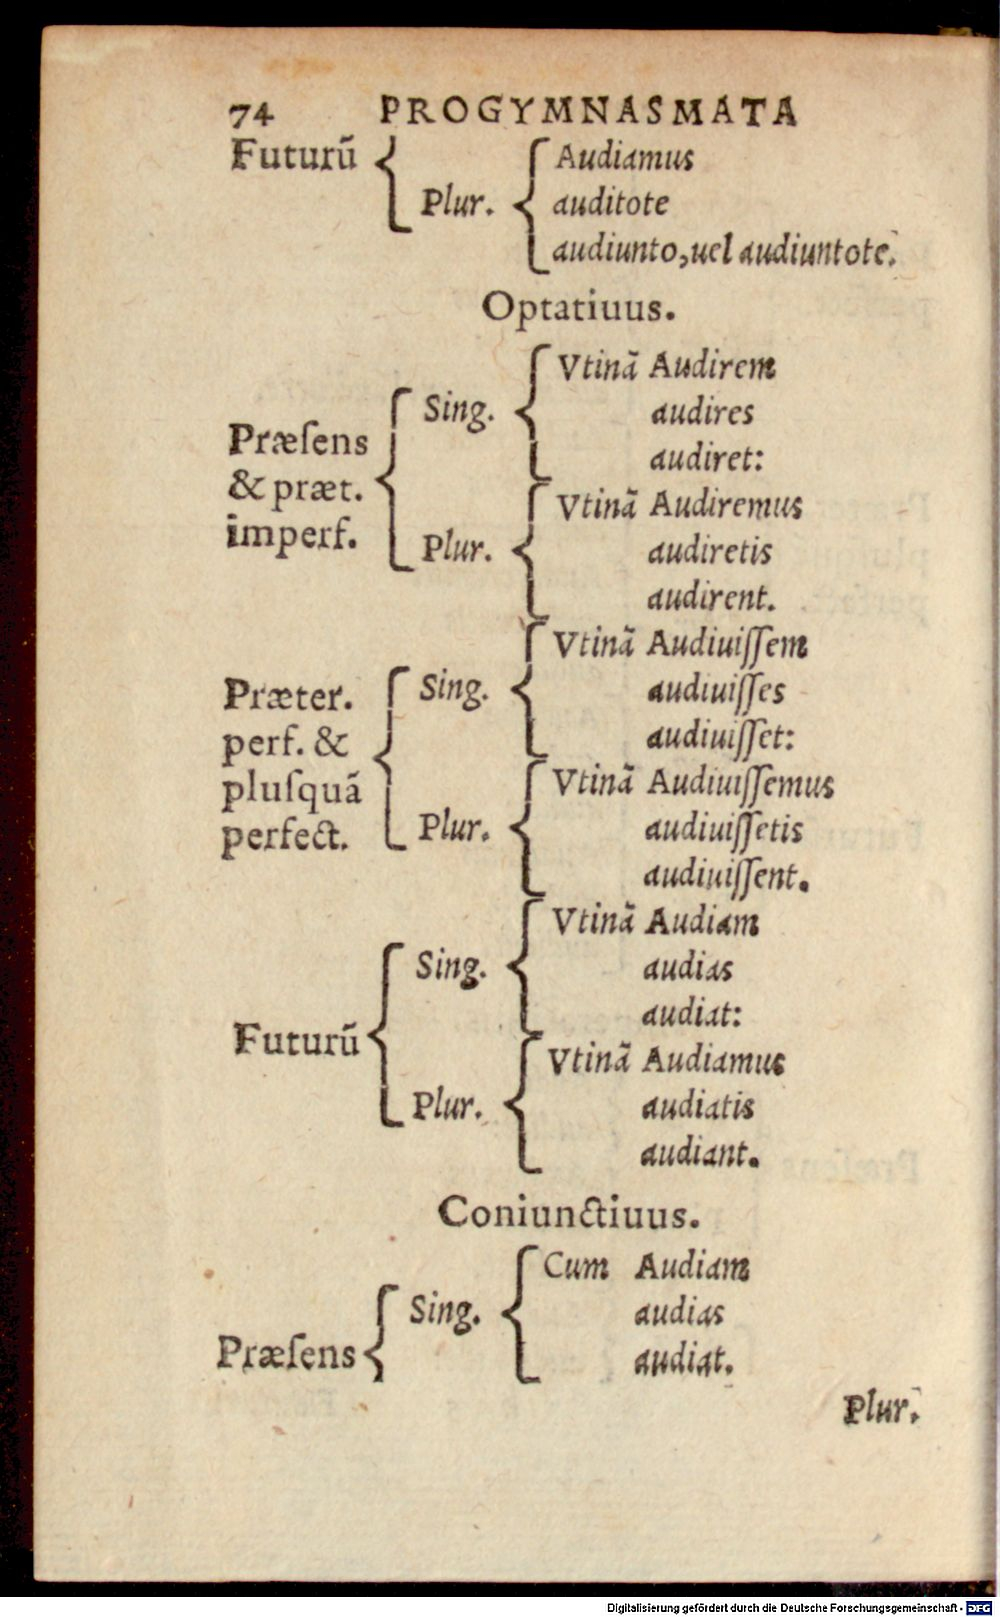 74 PROGYMNASMATA
Futurũ
Plur.
Audiamus
auditote
audiunto, uel audiuntote.
Optatiuus.
Præſens
& præt.
imperf.
Sing.
Vtinã Audirem
audires
audiret:
Plur.
Vtinã Audiremus
audiretis
audirent.
Præter.
perf. &
pluſquã
perfect.
Sing.
Vtinã Audiuiſſem
audiuiſſes
audiuiſſet:
Plur.
Vtinã Audiuiſſemus
audiuiſſetis
audiuiſſent.
Futurũ
Sing.
Vtinã Audiam
audias
audiat:
Plur.
Vtinã Audiamus
audiatis
audiant.
Coniunctiuus.
Præſens
Sing.
Cum Audiam
audias
audiat.
Plur.
Digitalisierung gefördert durch die Deutsche Forschungsgemeinschaft - DFG